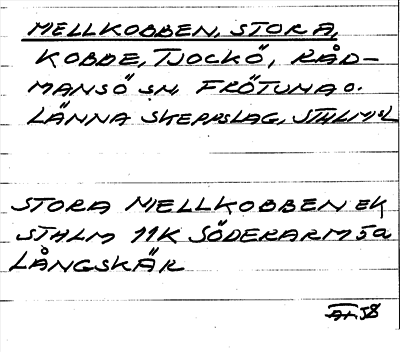 MELLKOBBEN, STORA,
KOBBE, TJOCKÖ, RÅD-
MANSÖ SN, FRÖTUNA O.
LÄNNA SKEPPSLAG, STHLMSL
STORA MELLKOBBEN EK
STHLM 11K SÖDERARM 5a
LÅNGSKÄR